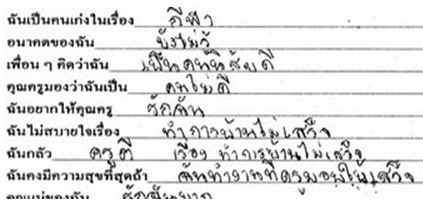 ฉันเป็นคนเก่งในเรื่อง กีฬา
อนาคตของฉัน ยังไม่รู้
เพื่อน ๆ คิดว่าฉัน เป็นคนนิสัยดี
คุณครูมองว่าฉันเป็น คนไม่ดี
ฉันอยากให้คุณครู รักฉัน
ฉันไม่สบายใจเรื่อง ทำการบ้านไม่เสร็จ
ฉันกลัว ครูตี เรื่อง ทำการบ้านไม่เสร็จ
ฉันคงมีความสุขที่สุดถ้า ฉันทำงานที่ครูมอบให้เสร็จ
คุณแม่ของฉัน รักฉันมาก